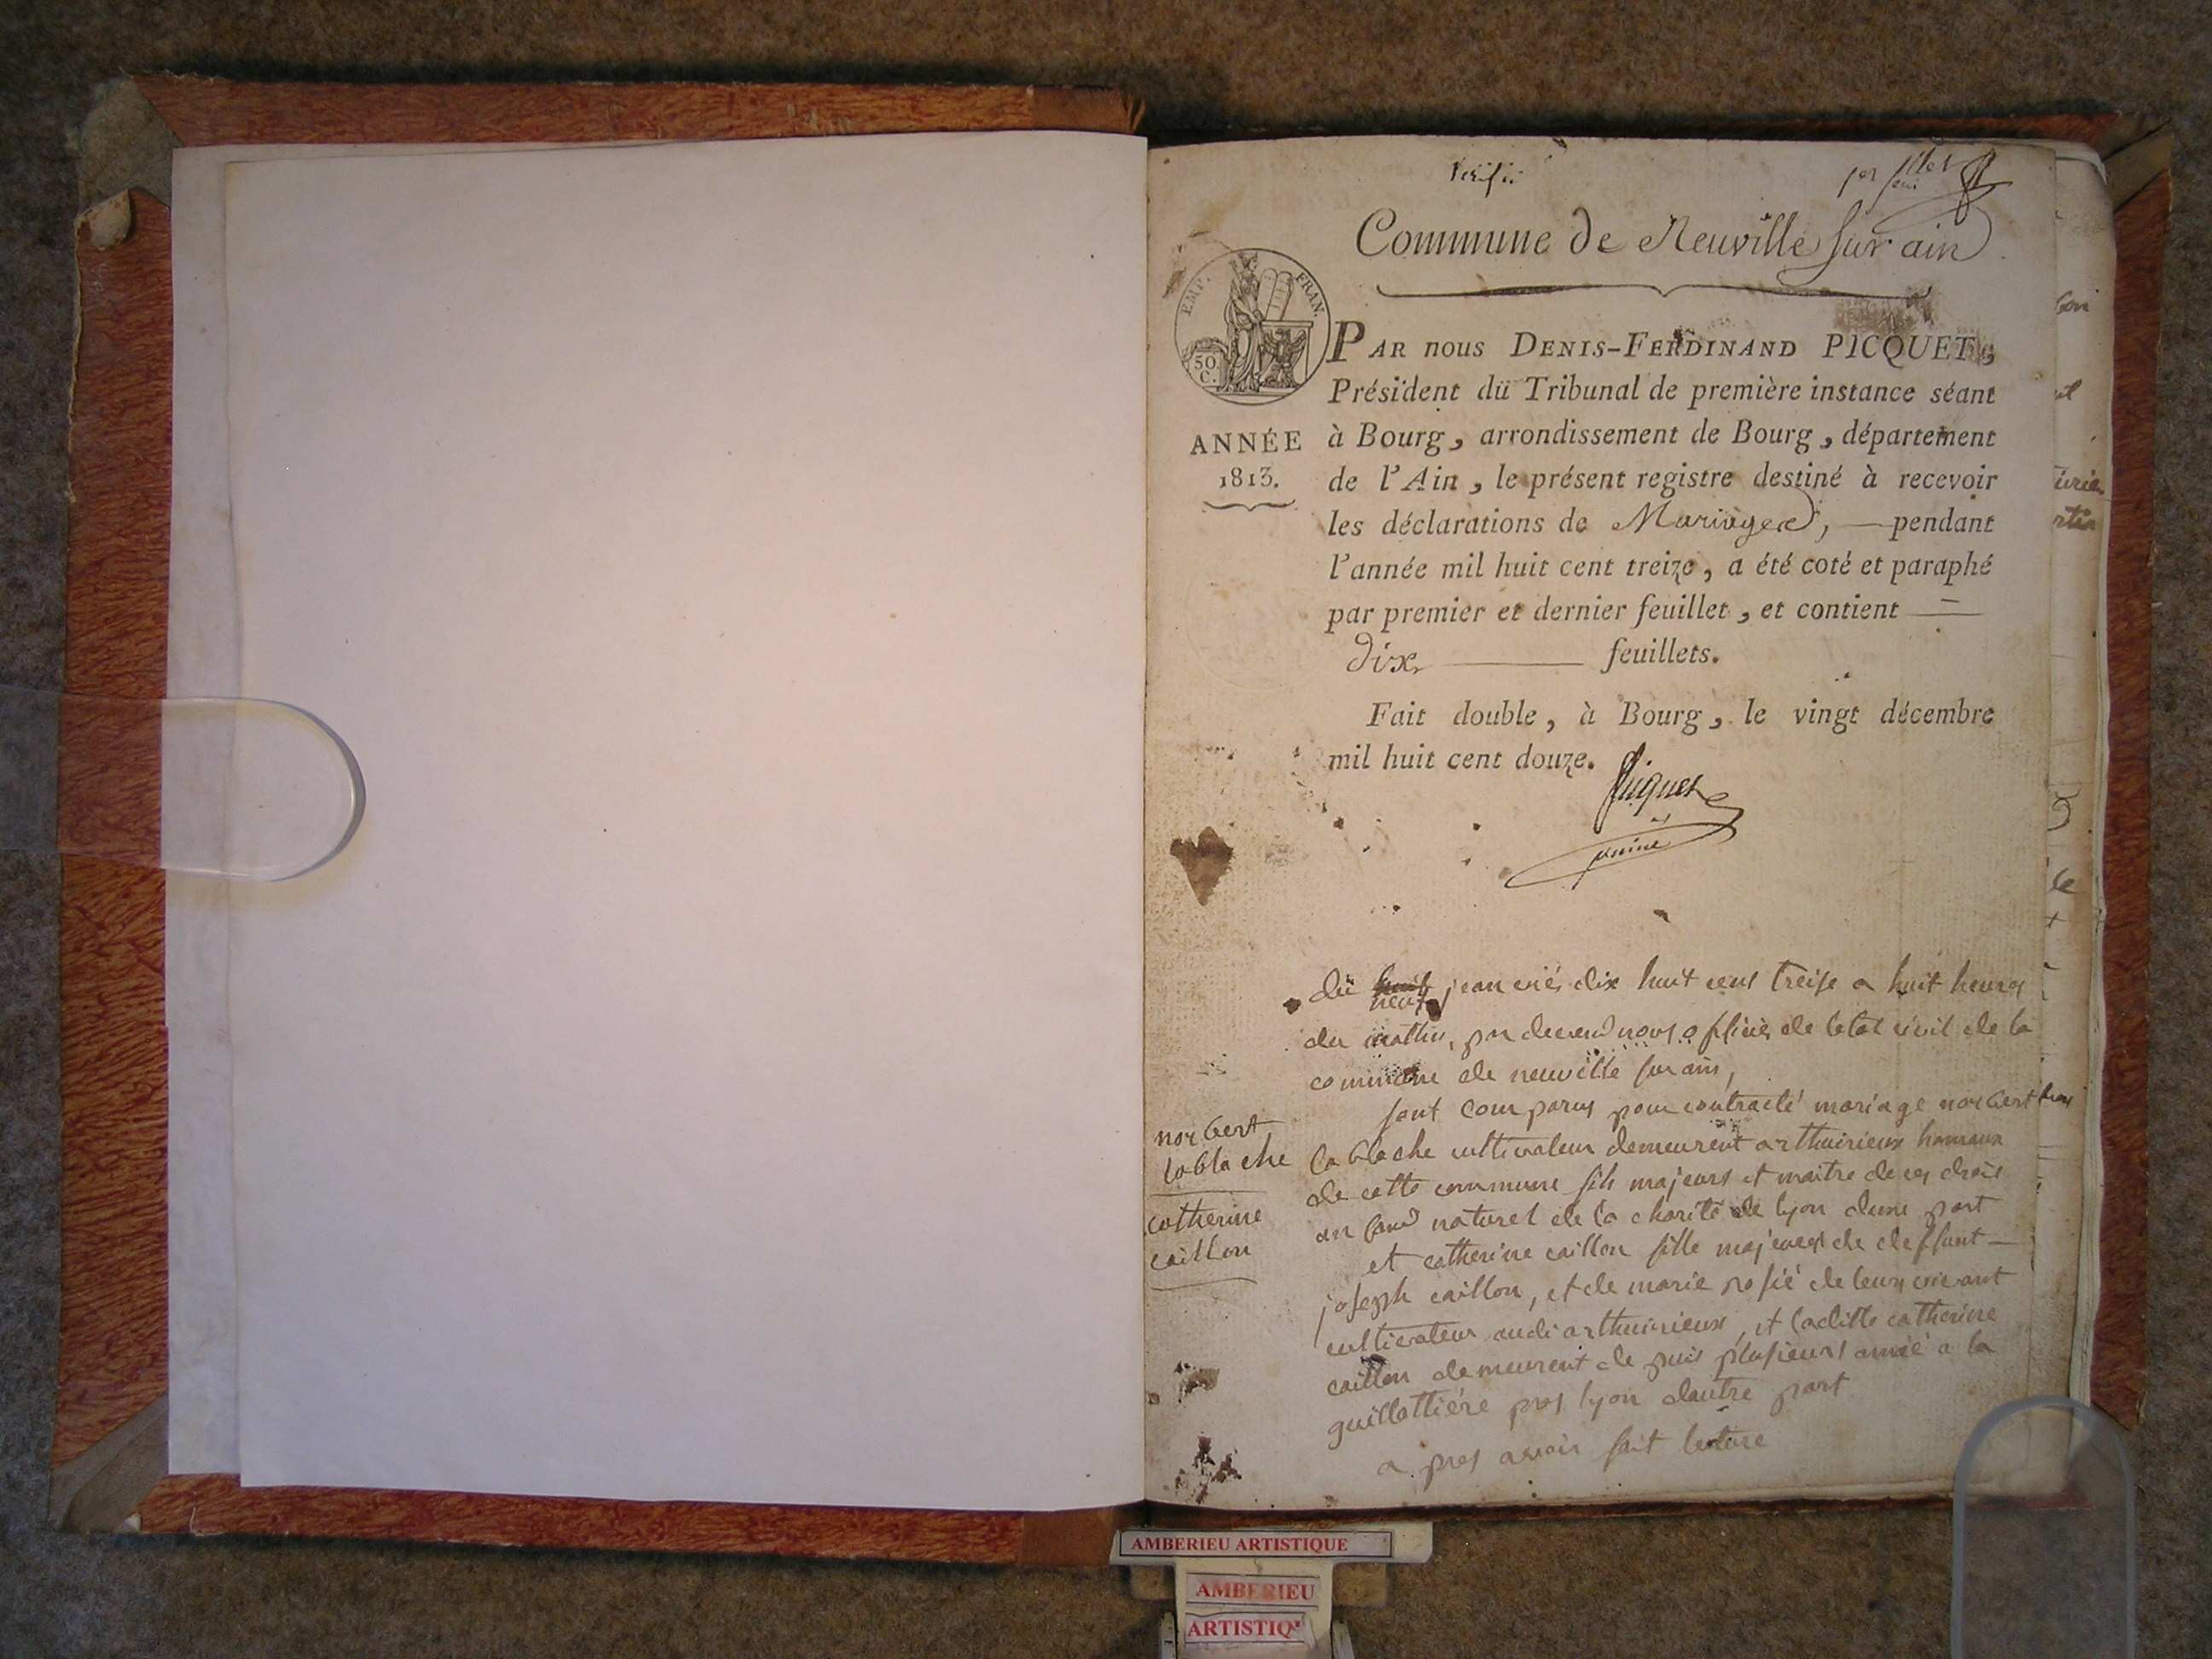 Vérifié
1er feuillet
Commune de Neuville sur ain
EMP. FRAN.
50 C.
PAR nous DENIS-FERDINAND PICQUET,
Président du Tribunal de première instance séant
ANNÉE
1813.
à Bourg, arrondissement de Bourg, département
de l'Ain, le présent registre destiné à recevoir
les déclarations de Mariages, pendant
l'année mil huit cent treize, a été coté et paraphé
par premier et dernier feuillet, et contient
dix feuillets.
Fait double, à Bourg, le vingt décembre
mil huit cent douze.
Picquet
du neuf janvié dix huit cens treise a huit heures
du mathin, par devend nous officiè de letat civil de la
commune de neuville sur ain,
sont comparus pour contracté mariage norbert
norbert
lablache
lablache cultivateur demeurent a thuirieux hameaux
de cette commune fils majeurs et maitre de ces drois
catherine
caillon
naturel de la charité de lyon dune part
et catherine caillon fille majeure de deffunt
joseph caillon, et de marie de leur vivant
cultivateur audi arthuirieux, et laditte catherine
caillon demeurent de puis plusieurs année a la
guillottière pres lyon dautre part
a pres avoir fait lecture
AMBERIEU ARTISTIQUE
AMBERIEU
ARTISTIQ